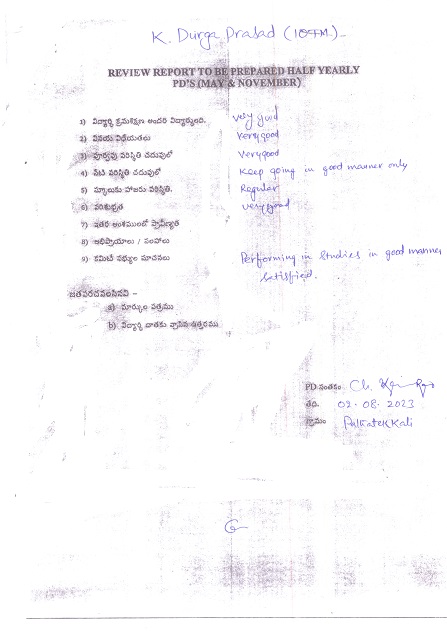 K. Durga Prasad (10th M)
REVIEW REPORT TO BE PREPARED HALF YEARLY
PD'S (MAY & NOVEMBER)
1) విద్యార్థి క్రమశిక్షణ అందరి విద్యార్థులది. very good
2) వినయ విధేయతలు very good
3) పూర్వపు పరిస్థితి చదువులో very good
4) నేటి పరిస్థితి చదువులో Keep going in good manner only
5) స్కూలుకు హాజరు పరిస్థితి. Regular
6) పరిశుభ్రత very good
7) ఇతర అంశములలో ప్రావీణ్యత
8) అభిప్రాయాలు / సలహాలు
9) కమిటీ సభ్యుల సూచనలు Performing in Studies in good manner
Satisfied.
జతపరచవలసినవి –
a) మార్కుల పత్రము
b) విద్యార్థి దాతకు వ్రాసిన ఉత్తరము
PD సంతకం Ch.
తేది. 02.08.2023
గ్రామం